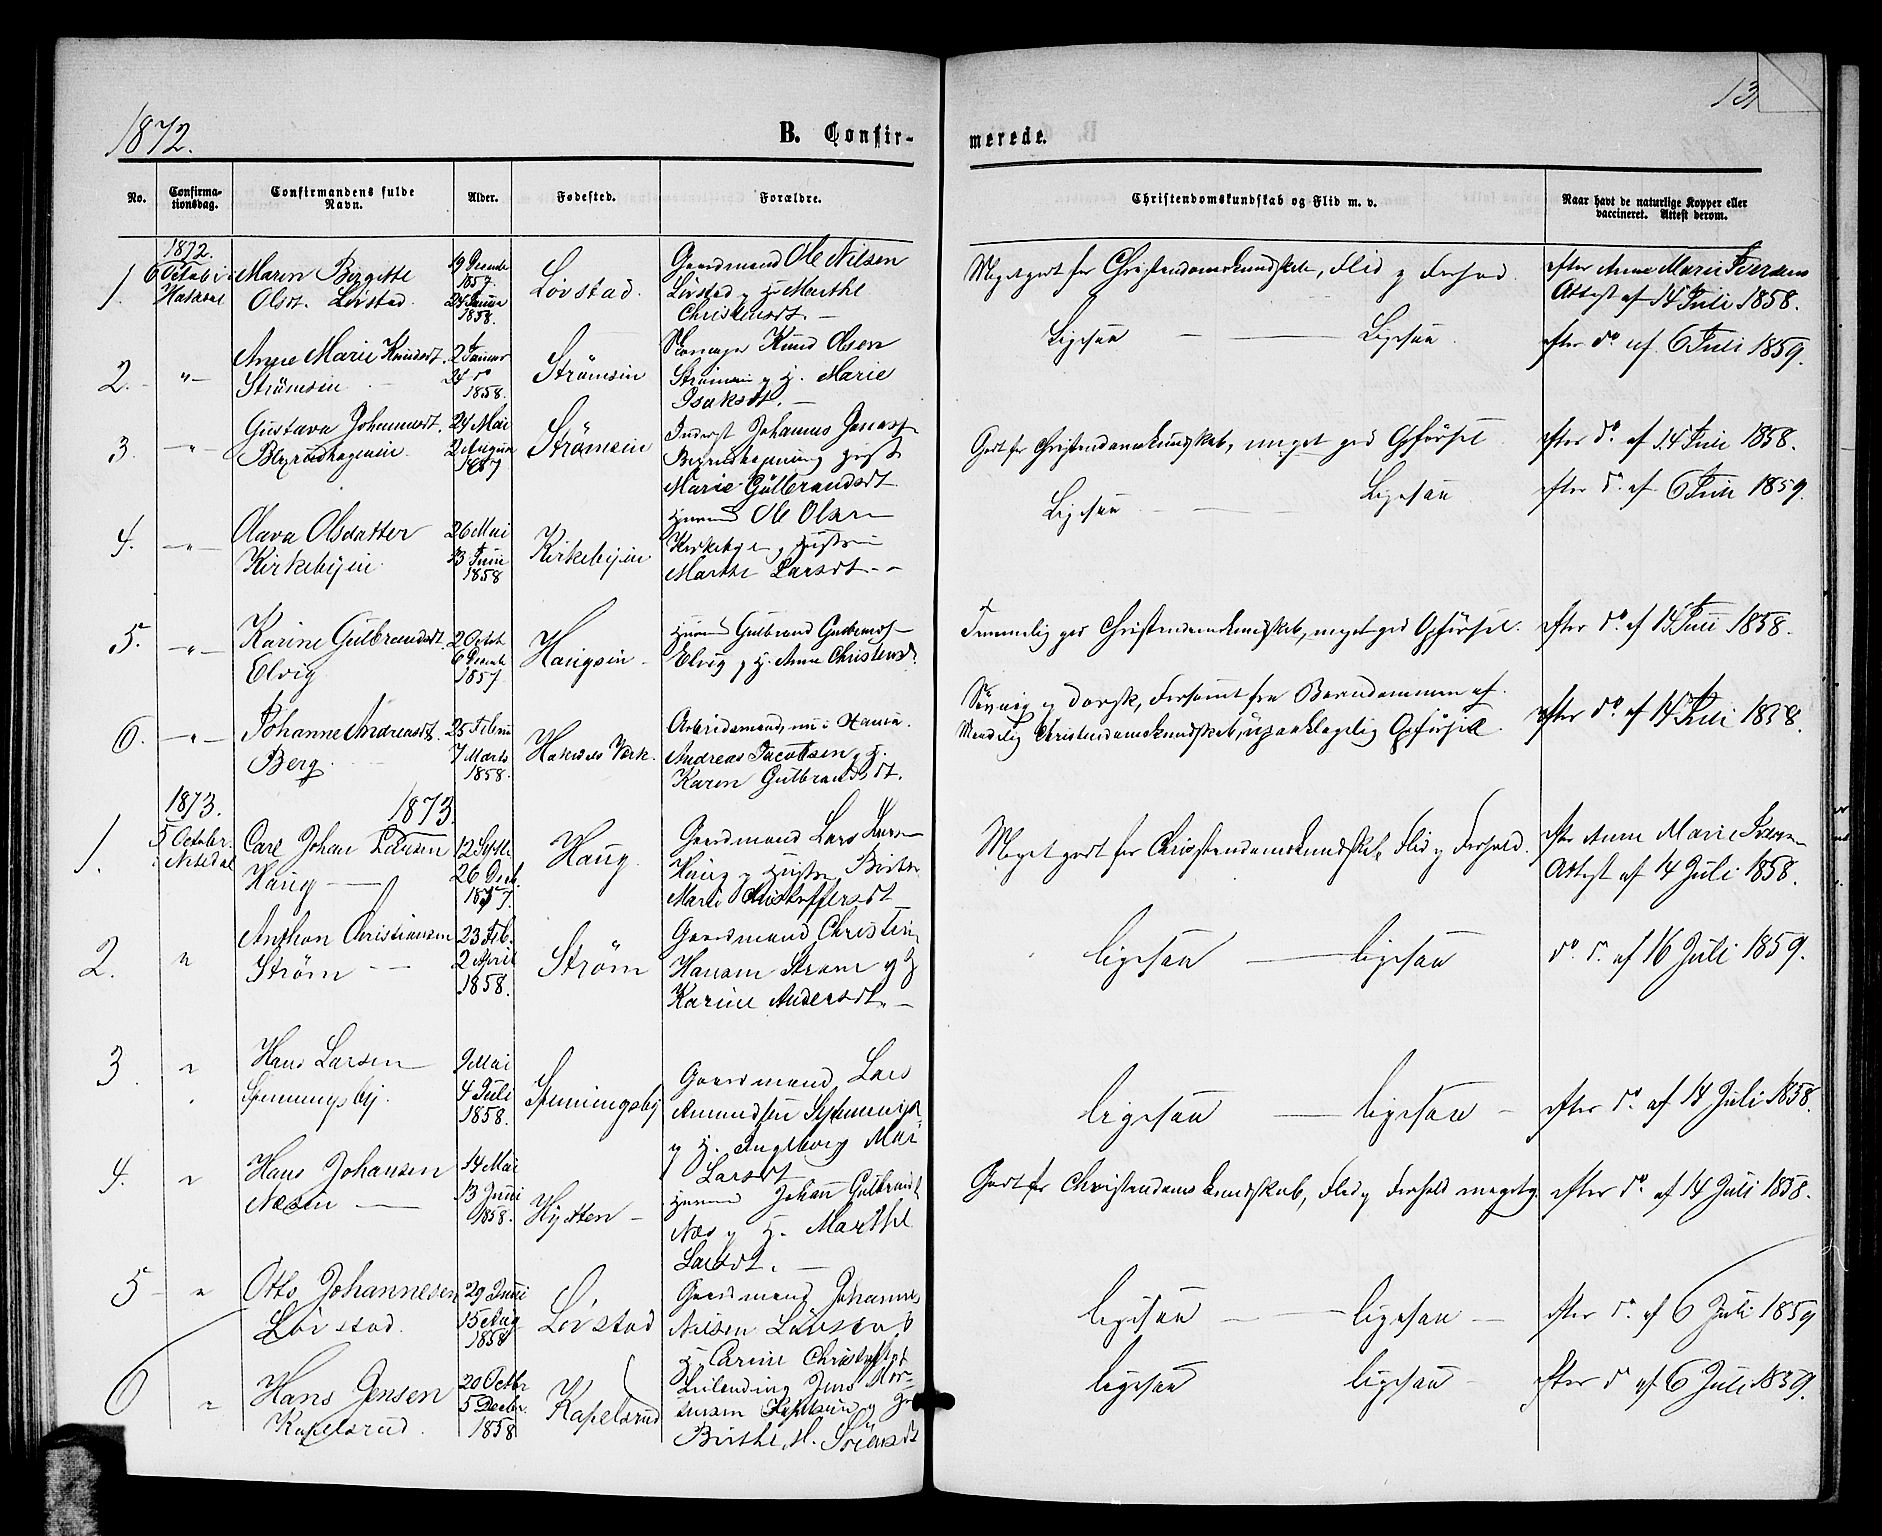 13
1872.
B. Confir-
merede.
No.
Confirma-
tionsdag.
Confirmandens fulde
Navn.
Alder.
Fødested.
Forældre.
Christendomskundskab og Flid m. v.
Naar havt de naturlige Kopper eller
vaccineret. Attest derom.
1872.
1.
6 Octobr
Hakedal
Maren Birgitte
Olsdt. Løvstad.
19 Decemb
1857.
24 Januar
1858.
Løvstad.
Gaardmand Ole Nilsen
Løvstad og H. Marthe
Christensdt. —
Meget godt for Christendomskundskab, Flid og Forhold.
efter Anne Marie Iversens
Attest af 14 Juli 1858.
2. -
-"-
Anne Marie Knudsdt.
Strömsein
2 Januar
24 do
1858.
Strømsein
Knud Olsen
Strömsein og H. Marie
Isaksdt. —
Ligesaa — Ligesaa.
efter do af 6 Juli 1859.
3.
-"-
Gustava Johannesdt.
24 Mai
2 August
1857
Strömsein
Inderst Johannes
Marie Gulbrandsdt.
Godt for Christendomskundskab, meget god Opførsel.
efter do. af 14 Juli 1858.
4.
-"-
Olava Olsdatter
Kirkebyein.
26 Mai
13 Juni
1858
Kirkebyein
Huusmd Ole Olsen
Kirkebyein og Hustru
Marthe Larsdt. -
Ligesaa — Ligesaa
efter do. af 6 Juli 1859.
5.
-"-
Karine Gulbrandsdt.
Elvig
2 Octob.
6 Decemb
1857
Haugsein
Huusmd Gulbrand
Elvig og H. Anne Christensdt.
Temmelig god Christendomskundskab, meget god Opførsel.
efter do. af 14 Juli 1858.
6.
-"-
Johanne Andreasdt.
Berg
25 Februar
7 Marts
1858.
Hakedals Værk.
Arbeidsmand, nu i
Andreas Jacobsen og H.
Karen Gulbrandsdt.
Svag og dorsk, forsømt fra Barndommen af.
Maadelig Christendomskundskab, upaaklagelig Opførsel.
efter do. af 14 Juli 1858.
1873.
1873.
1.
5 October.
Nitedal
Carl Johan Larsen
Haug —
12 Septb
26 Decb.
1857
Haug
Gaardmand Lars Larsen
Haug og Hustru Birthe
Marie Christoffersdt
Meget godt for Christendomskundskab, Flid og Forhold.
efter Anne Marie Iversens
Attest af 14 Juli 1858.
2.
"
Anthon Christiansen
Strøm —
23 Feb.
2 April
1858.
Strøm
Gaardmand Christian
Hansen Strøm og H
Karine Andersdt. —
ligesaa — ligesaa
do. do. af 16 Juli 1859.
3.
"
Hans Larsen
Spenningsby.
9 Mai
4 Juli
1858.
Spenningsby
Gaardmand Lars
Amundsen
og H. Ingeborg Mari
Larsdt
ligesaa — ligesaa —
efter do. af 14 Juli 1858.
4.
"
Hans Johansen
Næsein —
14 Mai
13 Juni
1858.
Hytten —
Huusmd Johan Gulbrands
Næs og H. Marthe
Larsdt. —
Godt for Christendoms kundskab, Flid og Forhold meget g.
efter do. af 14 Juli 1858.
5
"
Otto Johannesen
Løvstad.
29 Juni
15 Aug
1858
Løvstad
Gaardmand Johannes
Nilsen Lövstad
H. Carine
ligesaa — ligesaa —
efter do. af 6 Juli 1859
6
"
Hans Jensen
Kapelsrud.
20 Octbr
5 Decbr.
1858
Kapelsrud
Leilending Jens Mor-
tensen og H
Birthe M.
ligesaa ligesaa -
efter do af 6 Juli 1859.